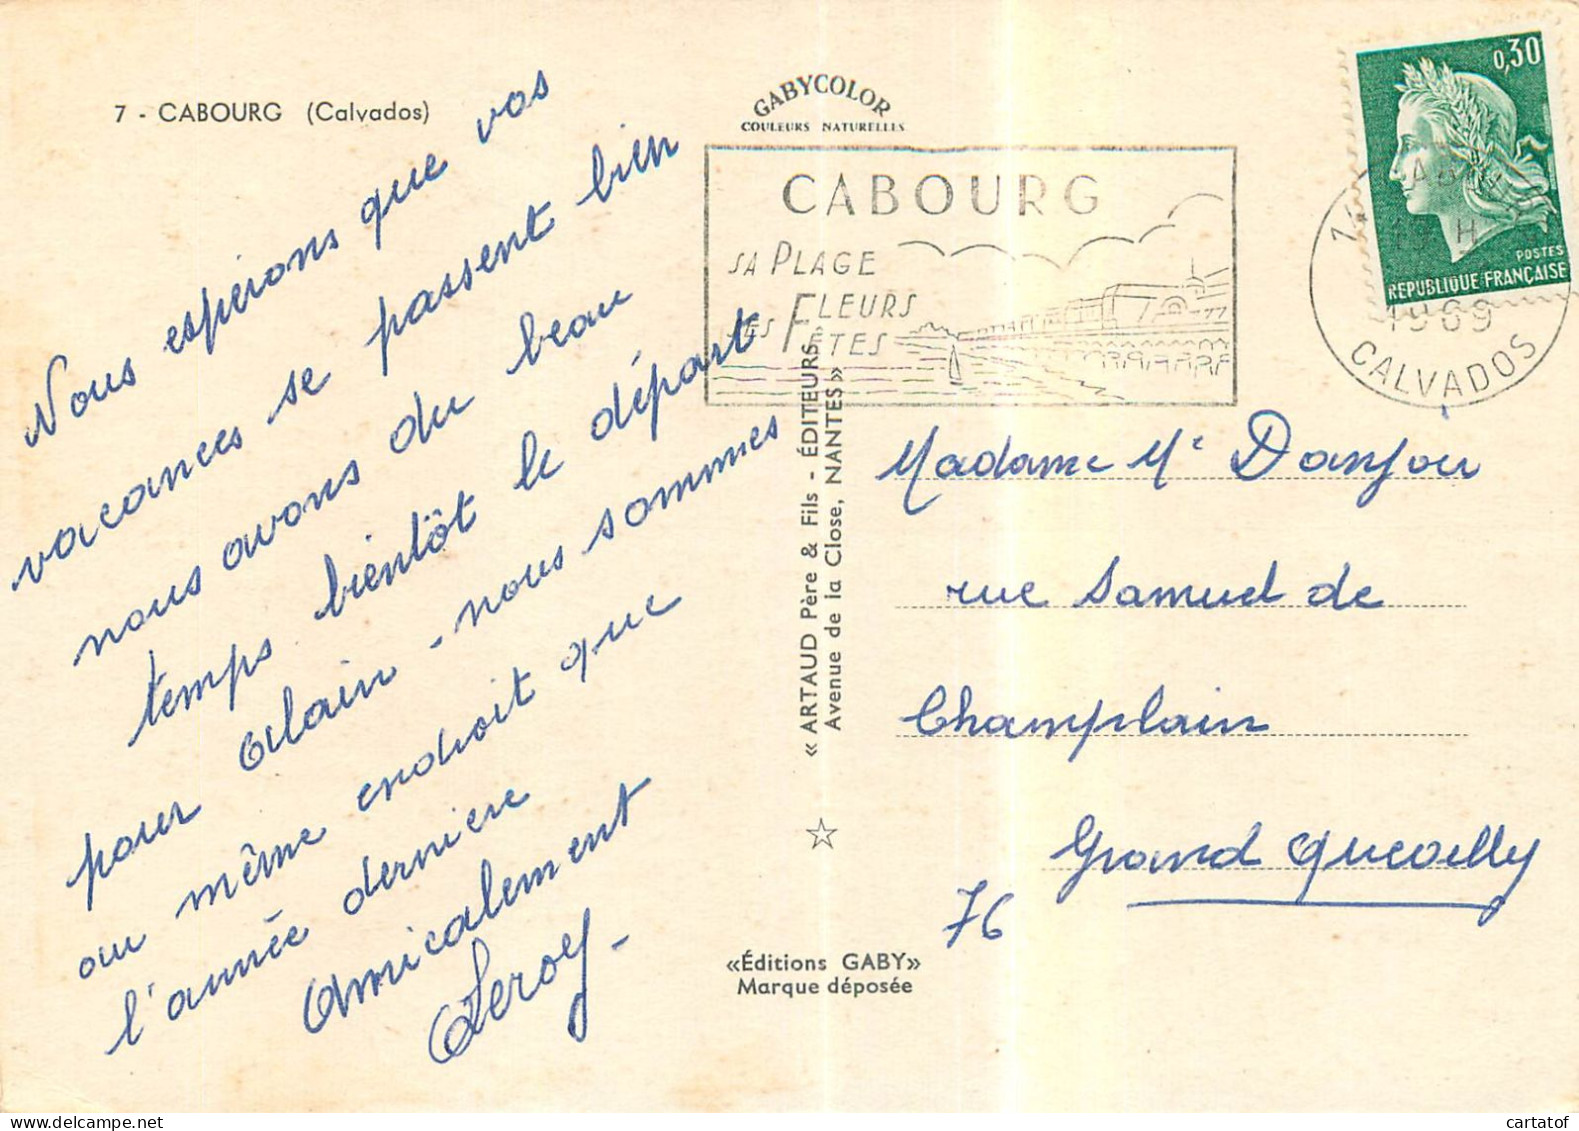 7 - CABOURG (Calvados)
Nous espérons que vos
vacances se passent bien
nous avons du beau
temps bientôt le départ
pour Alain - nous sommes
au même endroit que
l'année dernière
Amicalement
Leroy -
GABYCOLOR
COULEURS NATURELLES
CABOURG
SA PLAGE
SES FLEURS
FÊTES
« ARTAUD Père & Fils - ÉDITEURS,
Avenue de la Close, NANTES »
«Éditions GABY»
Marque déposée
0,30
POSTES
REPUBLIQUE FRANÇAISE
14
H
1969
CALVADOS
Madame Me Danjou
rue Samuel de
Champlain
Grand Quevilly
76
cartatof